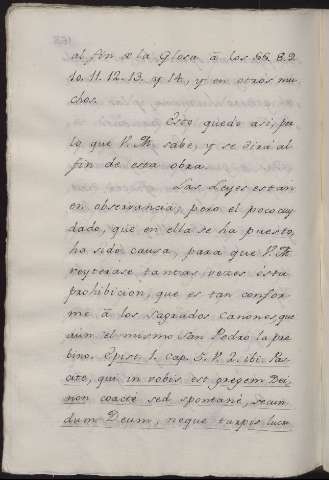 al fin de la Glosa á los §§. 8. 9.
10. 11. 12. 13. y 14, y en otros mu
chos.
Esto quedo asi, por
lo que V. M. sabe, y se dirá al
fin de esta obra.
Las Leyes estan
en observancia, pero el poco cuy
dado, que en ella se ha puesto,
ha sido causa, para que V. M.
reyterase tantas vezes esta
prohibicion, que es tan confor
me á los sagrados Canones, que
aun el mismo San Pedro la pre
bino. Epist. 1. Cap. 5. V. 2. ibi: Pas
cite, qui in vobis est gregem Dei,
non coacte sed spontanè, secun
dum Deum, neque turpis lucri